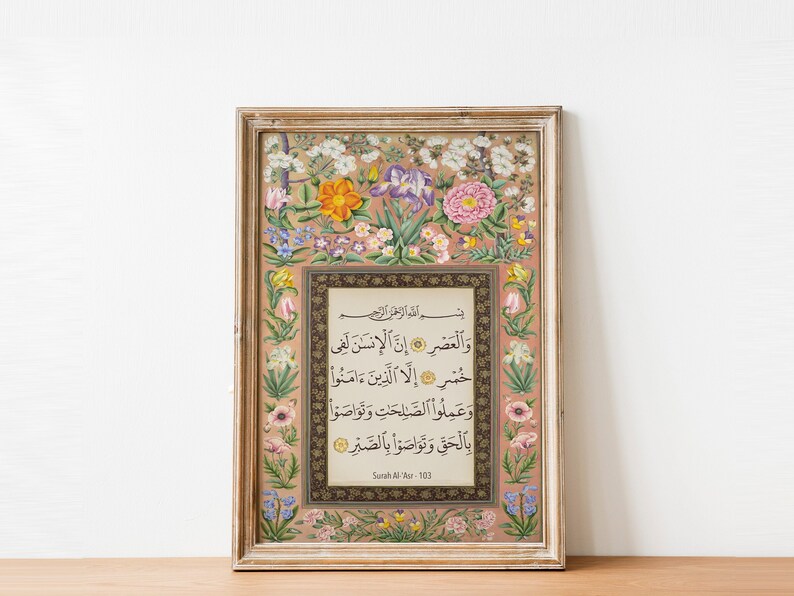 بِسْمِ اللَّهِ الرَّحْمَٰنِ الرَّحِيمِ
وَالْعَصْرِ ۝ إِنَّ الْإِنسَٰنَ لَفِى
خُسْرٍ ۝ إِلَّا الَّذِينَ ءَامَنُوا۟
وَعَمِلُوا۟ الصَّٰلِحَٰتِ وَتَوَاصَوْا۟
بِالْحَقِّ وَتَوَاصَوْا۟ بِالصَّبْرِ ۝
Surah Al-'Asr - 103